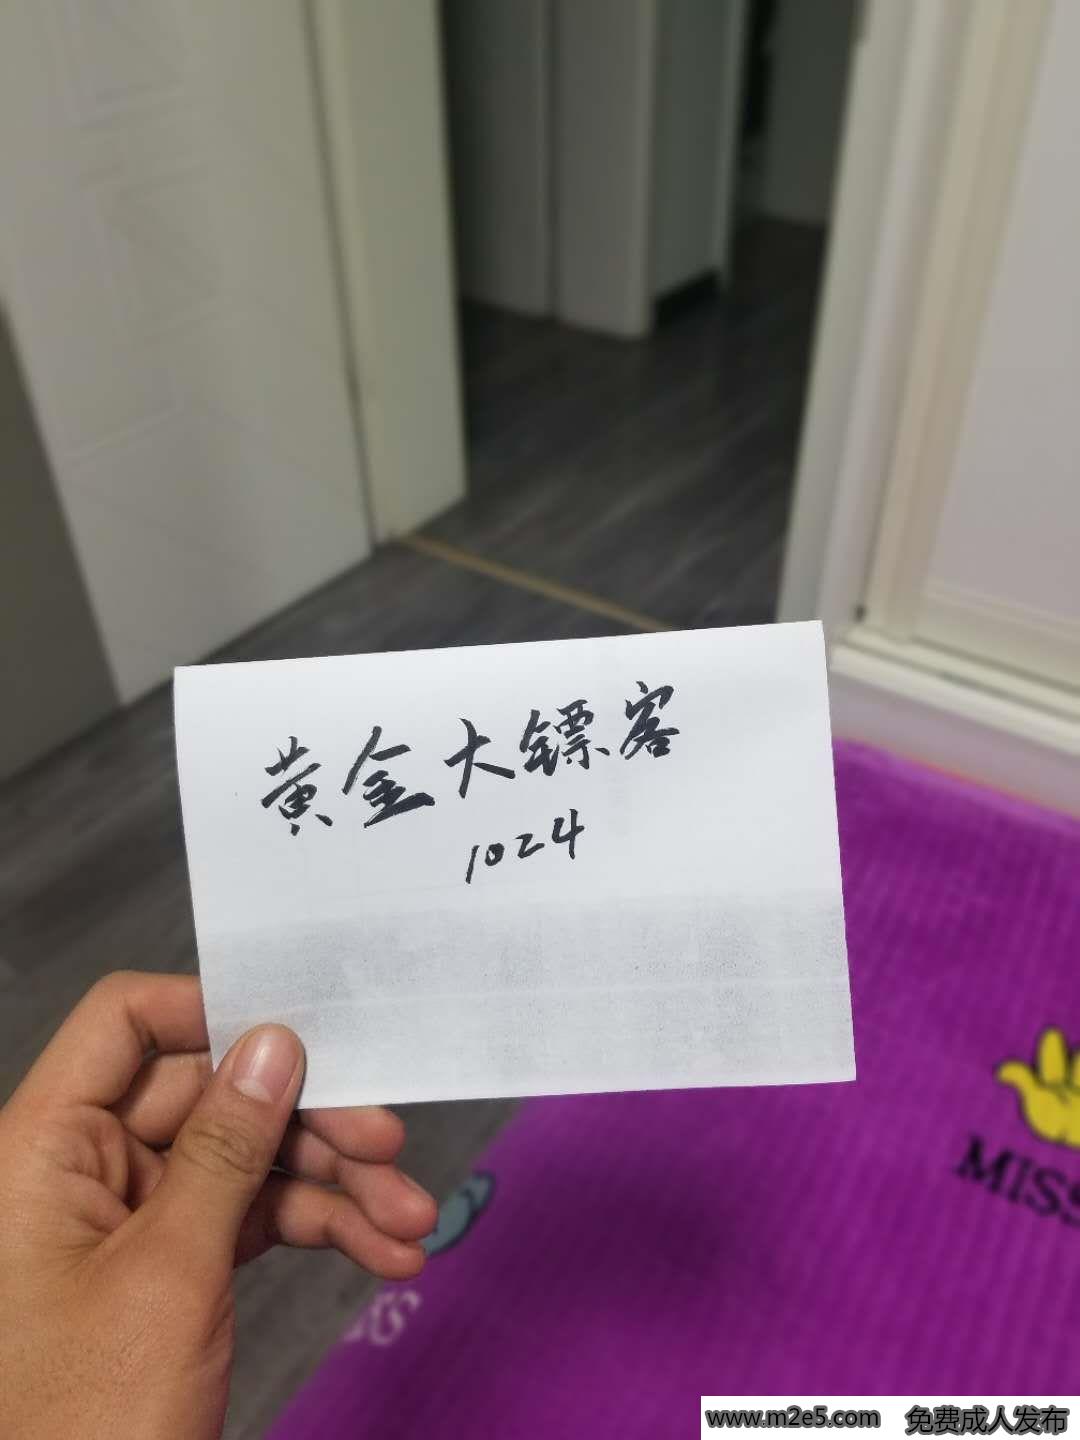 黄金大镖客
1024
MISS
www.m2e5.com 免费成人发布